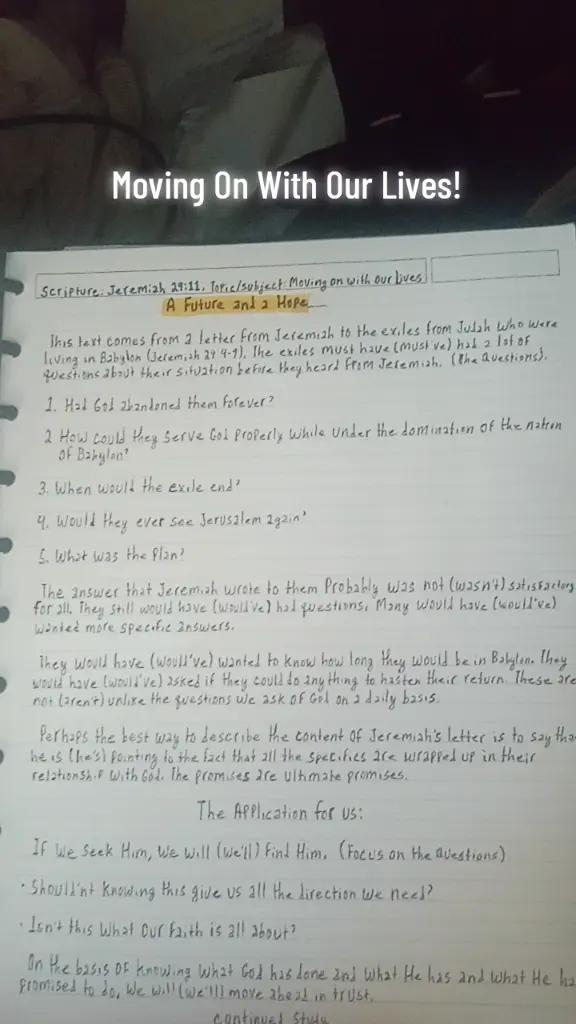 Moving On With Our Lives!
Scripture: Jeremiah 29:11, Topic/subject: Moving on with our lives
A Future and a Hope
This text comes from a letter from Jeremiah to the exiles from Judah who were
living in Babylon (Jeremiah 29:4-9). The exiles must have (must've) had a lot of
questions about their situation before they heard from Jeremiah. (The Questions).
1. Had God abandoned them forever?
2 How could they serve God properly while under the domination of the nation
of Babylon?
3. When would the exile end?
4. Would they ever see Jerusalem again?
5. What was the Plan?
The answer that Jeremiah wrote to them Probably was not (wasn't) satisfactory
for all. They still would have (would've) had questions. Many would have (would've)
wanted more specific answers.
They would have (would've) wanted to know how long they would be in Babylon. They
would have (would've) asked if they could do anything to hasten their return. These are
not (aren't) unlike the questions we ask of God on a daily basis.
Perhaps the best way to describe the content of Jeremiah's letter is to say tha
he is (he's) pointing to the fact that all the specifics are wrapped up in their
relationship with God. The promises are ultimate promises.
The Application for us:
If we seek Him, we will (we'll) find Him. (Focus on the Questions)
• Should'nt knowing this give us all the direction we need?
• Isn't this what our faith is all about?
On the basis of knowing what God has done and what He has and what He ha
promised to do, we will (we'll) move ahead in trust.
continued study